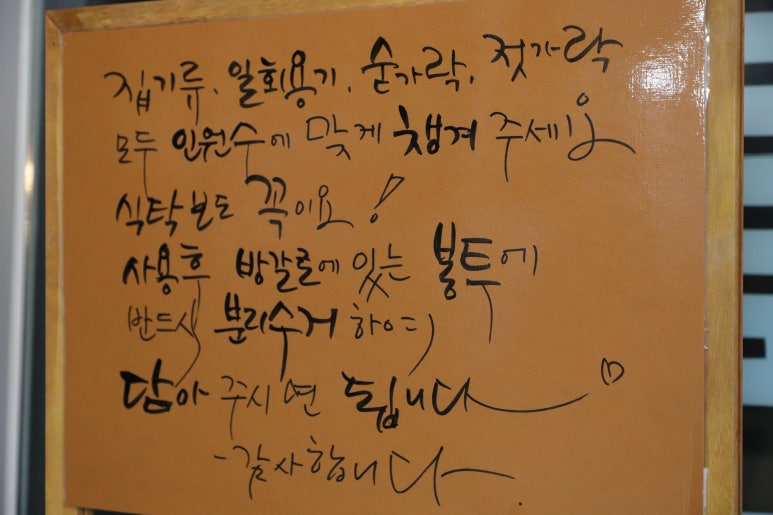 집기류, 일회용기, 숟가락, 젓가락
모두 인원수에 맞게 챙겨 주세요
식탁보도 꼭이요!
사용후 방갈로에 있는 봉투에
반드시 분리수거 하여
담아 주시면 됩니다
-감사합니다-